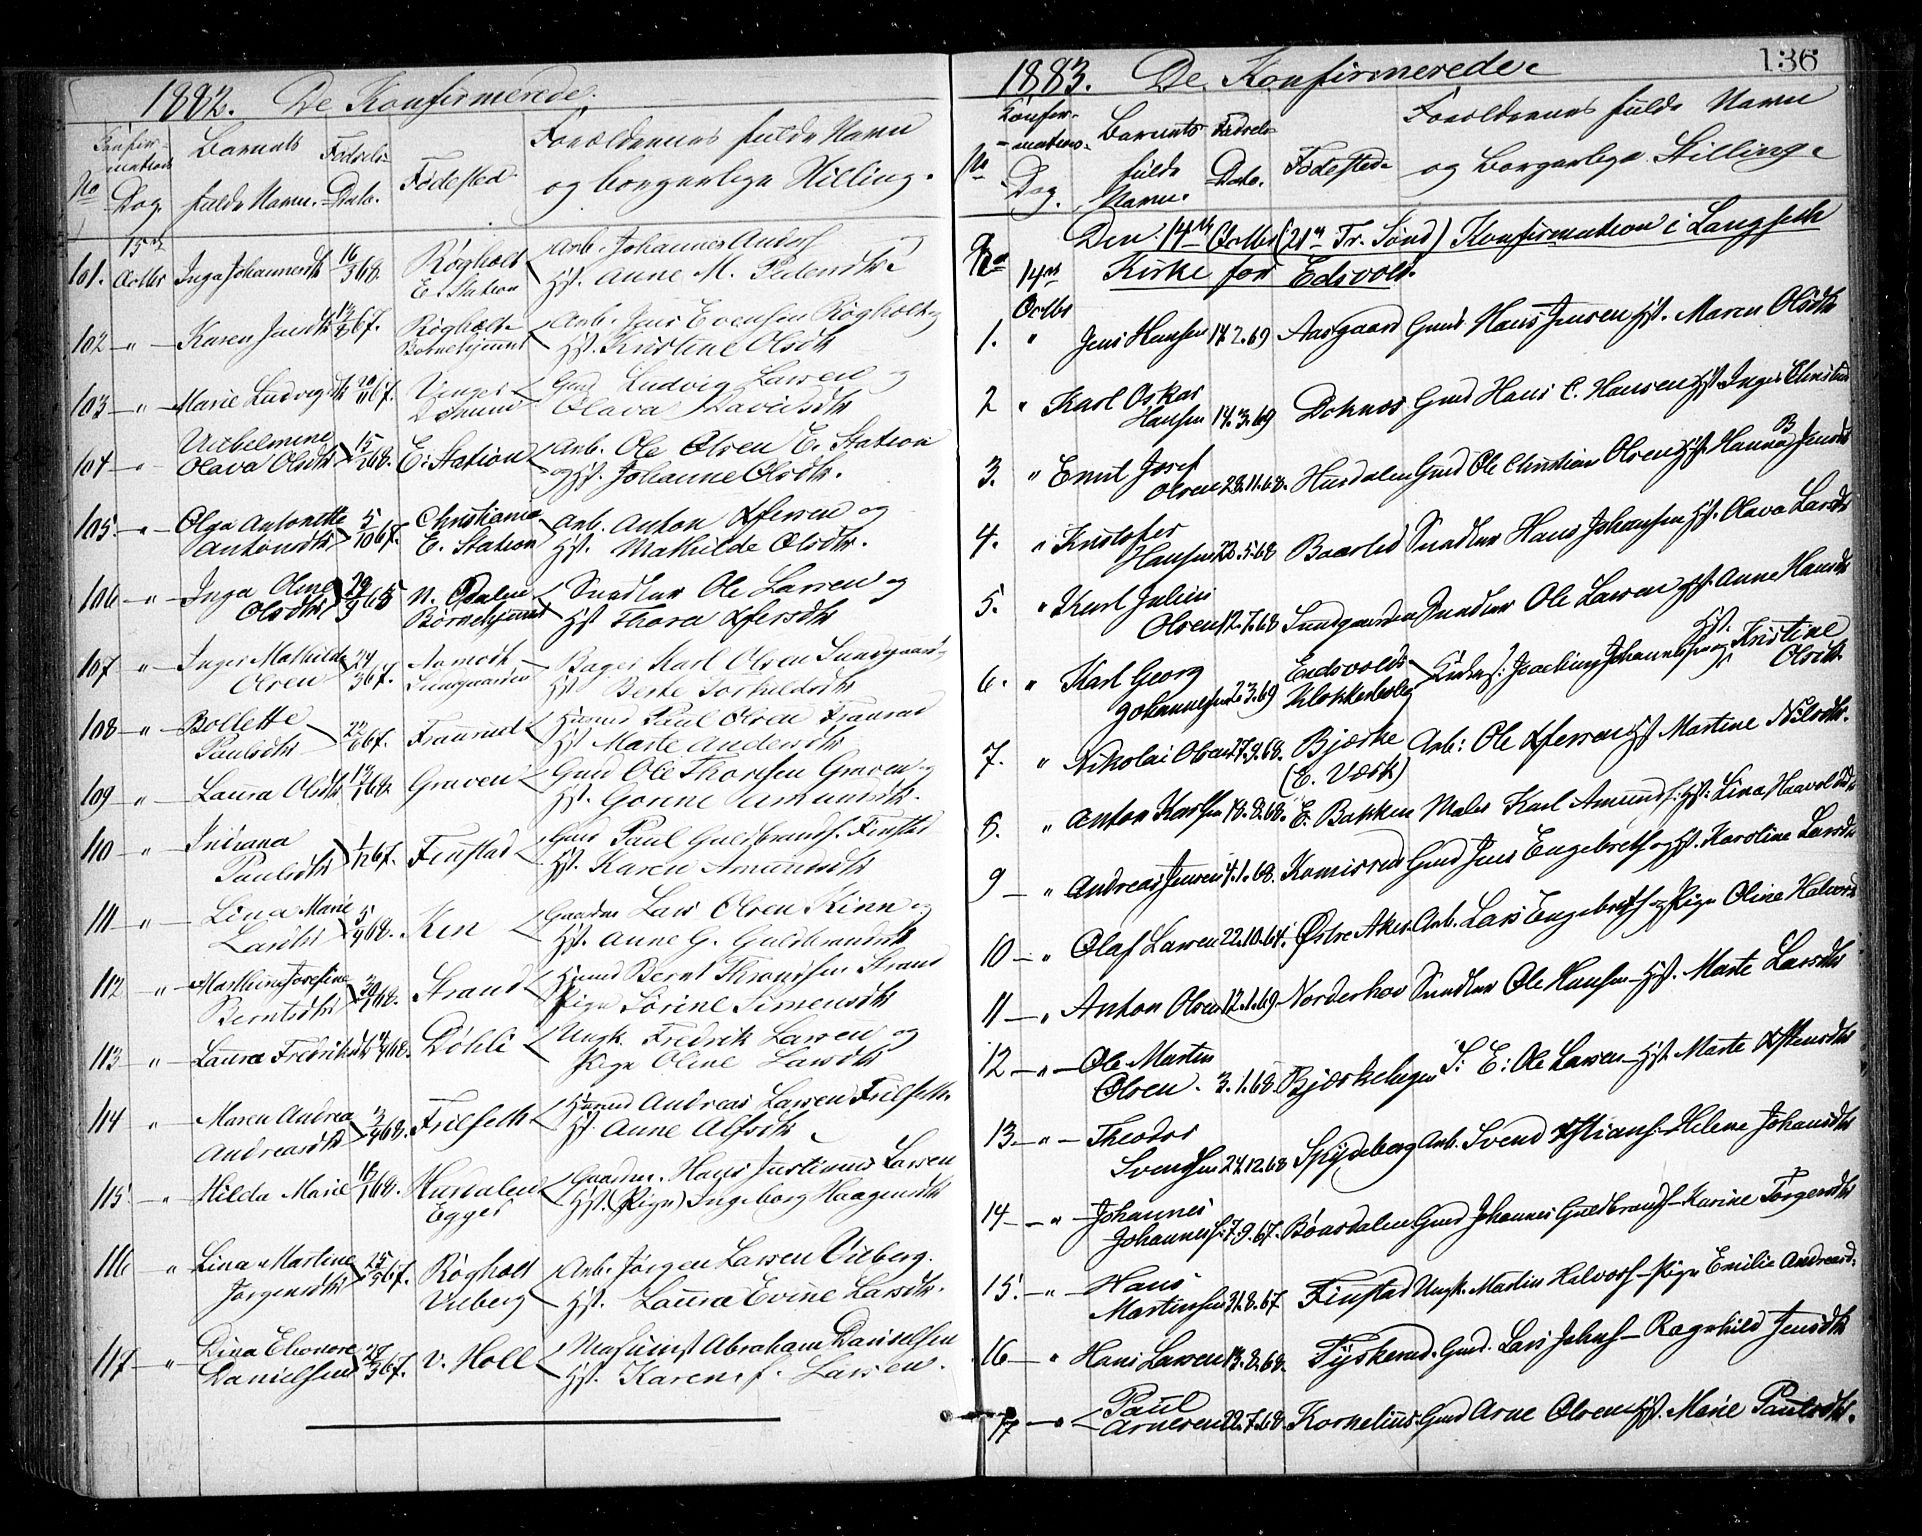 1882. De Konfirmerede.
No
Konfirmations Dag.
Barnets fulde Navn.
Fødsels-Dato.
Fødested.
Forældrenes fulde Navn og borgerlige Stilling.
15de
101. Octbr Inga Johannesdtr 16/3 68. Røgholt Arb. Johannes Andrs
E. Station Hst. Anne M. Pedersdtr.
102 — " — Karen Jensdtr 67. Røgholt Arb. Jens Evensen Røgholt og
Børnehjemmet Hst. Kristine Olsdtr
103 — " — Marie Ludvigsdtr 67. Gmd Ludvig Larsen og
Olava Davidsdtr
104 — " — Vilhelmine
Olava Olsdtr 15/1 68. E. Station Arb. Ole Olsen E. Station
og Hst. Johanne Olsdtr.
105. — " — Olga Antonette
Antonsdtr 5/10 67. Christiania
E. Station Arb. Anton Xfersen og
Hst. Mathilde Olsdtr.
106 — " — Inga Oline
Olsdtr 29/9 65 N. Odalen
Børnehjemmet Smedlær Ole Larsen og
Hst Thora Xfersdtr
107 " — Inger Mathilde
Olsen 24/3 67. Aamodt
Sundgaarden Bager Karl Olsen Sundgaard
Hst Berte Torkildsdtr
108 — " — Bollette
Paulsdtr 67. Traurud Husmd Paul Olsen Traurud
Hst Marte Andersdtr
109 — " — Laura Olsdtr 68. Graven Gmd Ole Thoresen Graven og
Hst. Gorine Amundsdtr.
110 — " — Indiana
Paulsdtr 1/12 67. Finstad Gmd Paul Guldbrands. Finstad
Hst. Karen Amundsdtr
111 — " — Lina Marie
Larsdtr 5/9 68. Ken Gaardm Lars Olsen Kinn og
Hst. Anne G. Guldbrandsdtr
112 " — Mathina Josefine
Berntsdtr 30/7 68. Strand Husmd Bernt Thronsen Strand
Pige Sørine Simensdtr
113 " — Laura Fredriksdtr 68. Døhli Ungk. Fredrik Larsen og
Pige Oline Larsdtr
114 " Maren Andrea
Andreasdtr 68. Frilseth Husmd Andreas Larsen Frilseth.
Hst Anne Alfsdtr
115. " — Hilda Marie 18/1 68. Husdalen
Egges Gaardm. Hans Justinus Larsen
Hst. (Pige) Ingeborg Haagensdtr
116 " — Lina Martine
Jørgensdtr 25/5 67. Røgholt
Vieberg Arb. Jørgen Larsen Vieberg.
Hst. Laura Evine Larsdtr.
117 — " — Dina Elenore
Danielsen 67. V. Holl Abraham Danielsen
Hst. Karen f. Larsen.
136
1883. De Konfirmerede
No
Konfirmations-Dag.
Barnets fulde Navn.
Fødsels Dato.
Fødested
Forældrenes fulde Navn og borgerlige Stilling
No Den 14de Octbr (21de Tr. Sønd) Konfirmation i Langseth
Kirke for Edsvold.
14de
Octbr
1. " Jens Hansen 14.2.69 Aasgaard Gmd. Hans Jensen Hst. Maren Olsdtr
2 " Karl Oskar
Hansen 14.3.69 Doknos Gmd Hans C. Hansen Hst Inger Christine
3. " Ernst Josef
Olsen 28.11.68. Husdalen Gmd Ole Christian Olsen Hst. Hanna B Jensdtr
4. " Kristofer
Hansen 23.5.68 Baarlid Smedlær Hans Johansen Hst. Olava Larsdtr
5. " Karl Julius
Olsen 12.7.68 Sundgaarden Smedlær Ole Larsen Hst. Anne Hansdtr
6. " Karl Georg
Johannessen 2.3.69 Eidsvolds-
Klokkerbolig Joachim Johannessen og Hst. Kristine
Olsdtr.
7. " Nikolai Olsen 27.9.68. Bjørke
(E. Værk) Arb: Ole Xfersen Hst Martine Nilsdtr.
8. " Anton Karlsen 18.8.68. E. Bakken Maler Karl Amunds: Hst: Lina Haavoldsdtr
9 — " Andreas Jensen 4.1.68. Komisrud Gmd Jens Engebrets og Hst. Karoline Larsdtr
10 — " Olaf Larsen 22.10.64. Østre Aker. Arb. Lars Engebrets og Pige Olina Halvorsd
11 — " Anton Olsen 12.1.69 Norderhov Smedlær Ole Hansen — Hst. Marte Larsdtr
12 — " — Ole Martin
Olsen. 3.1.68. Bjørkehagen S: E: Ole Larsen — Hst. Marte Xstensdtr
13. — " — Theodor
Svendsen 24.12.68 Spydeberg Arb. Svend Xstians. — Helene Johansdtr
14 — " — Johannes
Johanness. 7.9.67. Bønsdalen Gmd Johannes Guldbrands — Karine Torgersdtr
15. — " — Hans
Martinsen 31.8.67 Finstad Ungk. Martin Halvors — Pige Emilie Andreasd.
16 — " Hans Larsen 13.8.68. Tyskerud. Gmd. Lars Johns — Ragnhild Jensdtr
17 — " Paul
Arnesen 22.7.68. Kornelius. Gmd Arne Olsen Hst. Marie Paulsdtr.